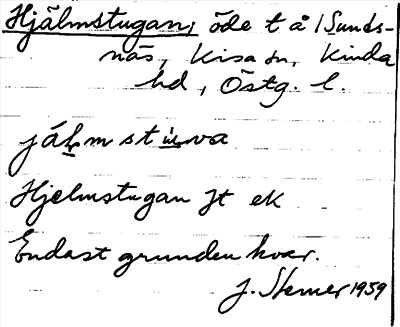 Hjälmstugan, öde t å 1 Sunds-
näs, Kisa sn, Kinda
hd, Östg. l.
jälmstuva
Hjelmstugan Jt ek
Endast grunden kvar.
J. Sterner 1959